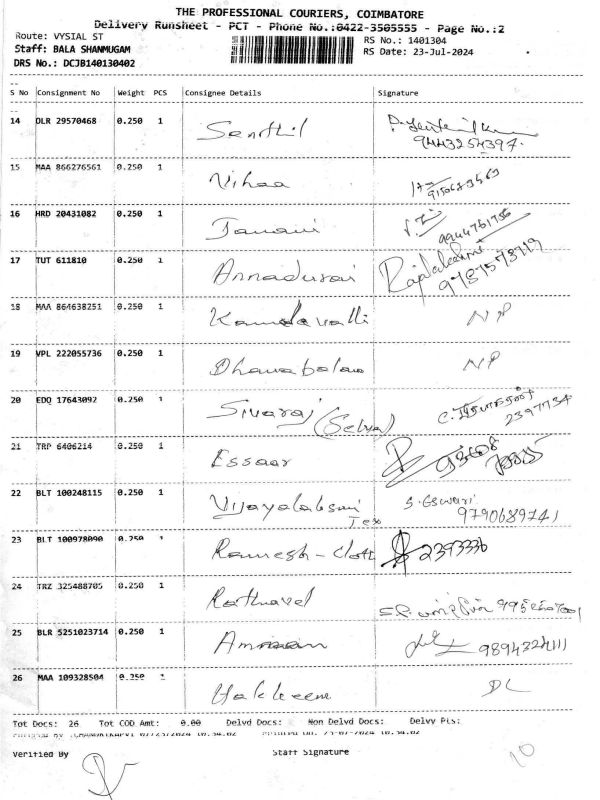 THE PROFESSIONAL COURIERS, COIMBATORE
Delivery Runsheet - PCT - Phone No.:0422-3505555 - Page No.:2
Route: VYSIAL ST
RS No.: 1401304
Staff: BALA SHANMUGAM
RS Date: 23-Jul-2024
DRS No.: DCJB140130402
S No Consignment No Weight PCS Consignee Details Signature
14 DLR 29570468 0.250 1 Senthil
9443254397
15 MAA 866276561 0.250 1 Vihaa
16 HRD 20431082 0.250 1 Janani
9944761756
17 TUT 611810 0.250 1 Annadurai Rajalakshmi
9787573719
18 MAA 864638251 0.250 1 Kamalavalli NP
19 VPL 222055736 0.250 1 Dhanabalan NP
20 EDQ 17643092 0.250 1 Sivaraj (Selva)
2397734
21 TRP 6406214 0.250 1 Essaar
22 BLT 100248115 0.250 1 Vijayalaksmi Tex S. Eswari
9790689741
23 BLT 100978090 0.250 1 Ramesh - Cloth 2393336
24 TRZ 325488705 0.250 1 Rathnavel
25 BLR 5251023714 0.250 1 Amman
26 MAA 109328504 0.250 1 Hakkeem DL
Tot Docs: 26 Tot COD Amt: 0.00 Delvd Docs: Non Delvd Docs: Delvy Pts:
Verified By Staff Signature
10